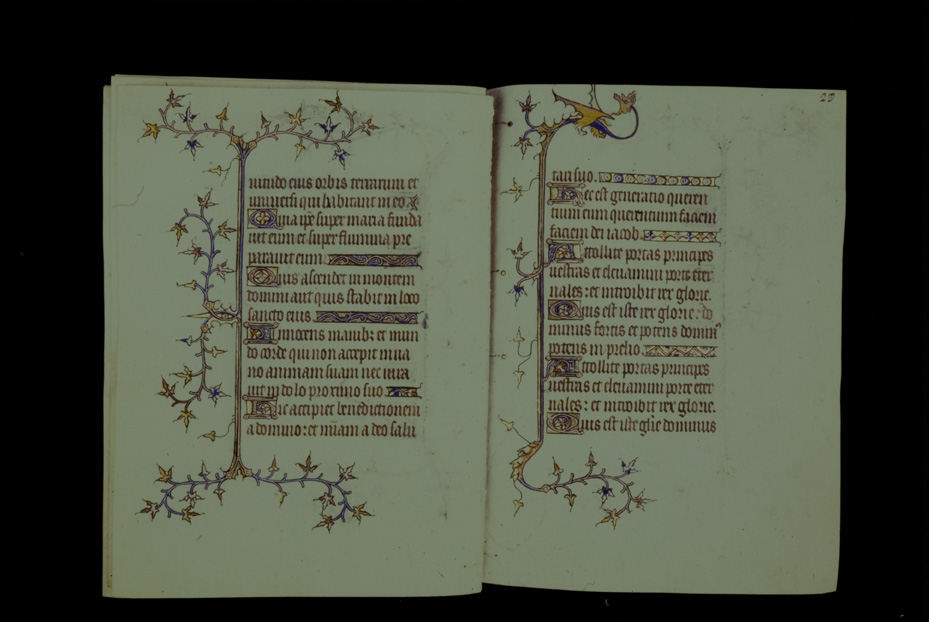 nitudo eius orbis terrarum et
universi qui habitant in eo
Quia ipse super maria funda
vit eum et super flumina pre
paravit eum.
Quis ascendet in montem
domini aut quis stabit in loco
sancto eius.
Innocens manibz et mun
do corde qui non accepit in va
no animam suam nec iura
vit in dolo proximo suo
Hic accipiet benedictionem
a domino: et miam a deo salu
23
tari suo.
Hec est generatio queren
tium eum querentium faciem
faciem dei iacob.
Attollite portas principes
vestras et elevamini porte eter
nales: et introibit rex glorie.
Quis est iste rex glorie: do
minus fortis et potens domin9
potens in prelio.
Attollite portas principes
vestras et elevamini porte eter
nales: et introibit rex glorie.
Quis est iste glie dominus